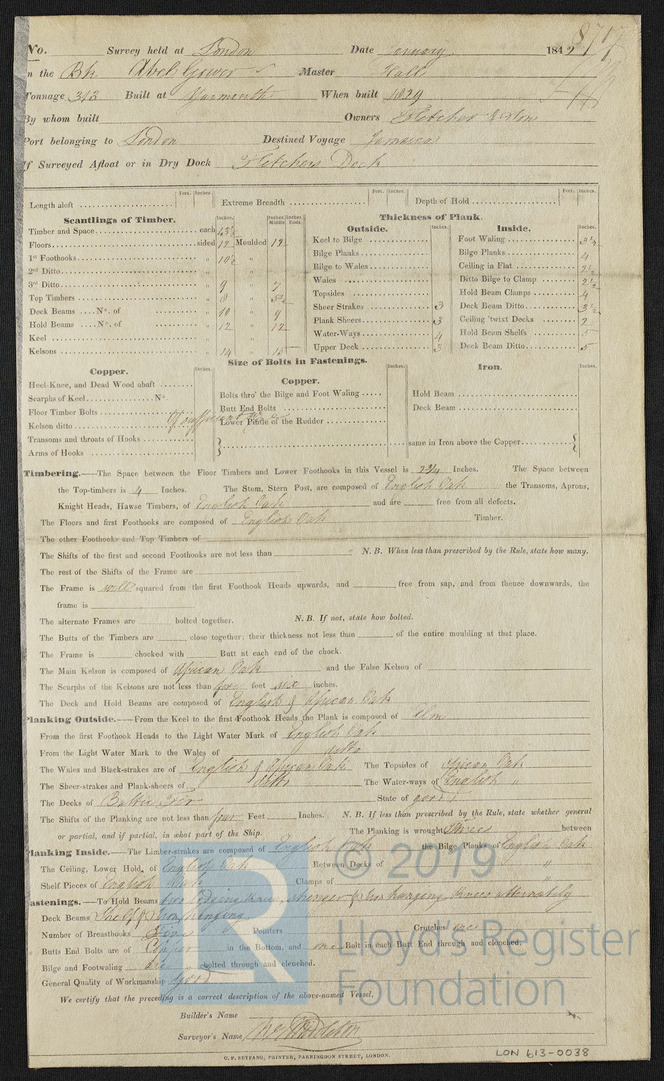 No. Survey held at London Date January 1842 8717
n the Bk. Abel Gower Master Hall
Tonnage 313 Built at Yarmouth When built 1829
By whom built Owners Fletcher & Son
Port belonging to London Destined Voyage Jamaica
If Surveyed Afloat or in Dry Dock Fletchers Dock
Length aloft Feet. Inches. Extreme Breadth Feet. Inches. Depth of Hold Feet. Inches.
Scantlings of Timber. Thickness of Plank.
Inches. Inches. Middle Inches. Ends. Outside. Inches. Inside. Inches.
Timber and Space each Keel to Bilge Foot Waling 3½
Floors sided 12 Moulded 12 Bilge Planks Bilge Planks 4
1st Foothooks " 10½ Bilge to Wales Ceiling in Flat 2½
2nd Ditto " Wales Ditto Bilge to Clamp 2½
3rd Ditto " 9 7 Topsides Hold Beam Clamps 4
Top Timbers " 8 Sheer Strakes 3 Deck Beam Ditto 3½
Deck Beams No. of " 10 9 Plank Sheers 3 Ceiling 'twixt Decks 2
Hold Beams No. of " 12 12 Water-Ways 4 Hold Beam Shelfs 5
Keel " Upper Deck 3 Deck Beam Ditto 5
Kelsons " 14 15
Size of Bolts in Fastenings.
Copper. Inches. Copper. Inches. Iron. Inches.
Heel-Knee, and Dead Wood abaft
Scarphs of Keel No. Bolts thro' the Bilge and Foot Waling Hold Beam
Floor Timber Bolts Butt End Bolts Deck Beam
Kelson ditto Lower Pintle of the Rudder
Transoms and throats of Hooks same in Iron above the Copper
Arms of Hooks
Timbering.—The Space between the Floor Timbers and Lower Foothooks in this Vessel is 2¾ Inches. The Space between
the Top-timbers is 4 Inches. The Stem, Stern Post, are composed of English Oak the Transoms, Aprons,
Knight Heads, Hawse Timbers, of English Oak and are free from all defects.
The Floors and first Foothooks are composed of English Oak Timber.
The other Foothooks and Top Timbers of
The Shifts of the first and second Foothooks are not less than N.B. When less than prescribed by the Rule, state how many.
The rest of the Shifts of the Frame are
The Frame is well squared from the first Foothook Heads upwards, and free from sap, and from thence downwards, the
frame is
The alternate Frames are bolted together. N.B. If not, state how bolted.
The Butts of the Timbers are close together; their thickness not less than of the entire moulding at that place.
The Frame is chocked with Butt at each end of the chock.
The Main Kelson is composed of African Oak and the False Kelson of
The Scarphs of the Kelsons are not less than four feet six inches.
The Deck and Hold Beams are composed of English & African Oak
Planking Outside.—From the Keel to the first Foothook Heads the Plank is composed of Elm
From the first Foothook Heads to the Light Water Mark of English Oak
From the Light Water Mark to the Wales of ditto
The Wales and Black-strakes are of English & African Oak The Topsides of African Oak
The Sheer-strakes and Plank-sheers of ditto The Water-ways of English "
The Decks of Baltic Fir State of good
The Shifts of the Planking are not less than four Feet Inches. N.B. If less than prescribed by the Rule, state whether general
or partial, and if partial, in what part of the Ship. The Planking is wrought three between
Planking Inside.—The Limber-strakes are composed of English Oak the Bilge Planks of English Oak
The Ceiling, Lower Hold, of English Oak Between Decks of "
Shelf Pieces of English Oak Clamps of "
Fastenings.—To Hold Beams two lodging knees, stringer & iron hanging knees alternately
Deck Beams Shelf & iron hanging
Number of Breasthooks Five Pointers Crutches
Butts End Bolts are of Copper in the Bottom, and one Bolt in each Butt End through and clenched.
Bilge and Footwaling are bolted through and clenched.
General Quality of Workmanship good
We certify that the preceding is a correct description of the above-named Vessel.
Builder's Name
Surveyor's Name
C. F. SEYFANG, PRINTER, FARRINGDON STREET, LONDON.
LON 613-0038
© 2019
Lloyd's Register
Foundation